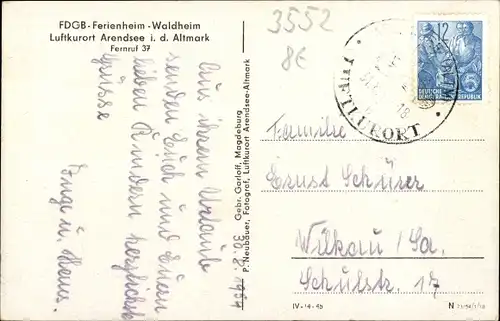 FDGB-Ferienheim-Waldheim
Luftkurort Arendsee i. d. Altmark
Fernruf 37
3552
8€
12
DEUTSCHE
DEMOKRATISCHE
REPUBLIK
5
LUFTKURORT
18
Aus ihrem Urlaub
senden Euch und Euren
lieben Kindern herzlichste
Grüsse
Inge u. Klaus.
30.8.1954
Gebr. Garloff, Magdeburg
P. Neubauer, Fotograf, Luftkurort Arendsee-Altmark
Familie
Ernst Schürer
Wilkau/Sa.
Schulstr. 17
IV-14-45